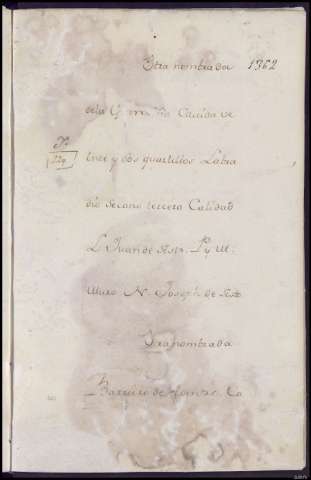 Otra nombrada 1362
dela Cavida de
tres y dos quartillos Labra
dio Secano tercera Calidad
L. Juan de Asta. P. y M.
Muro N. Joseph de Ast.
Otra nombrada
Barreiro de Ca